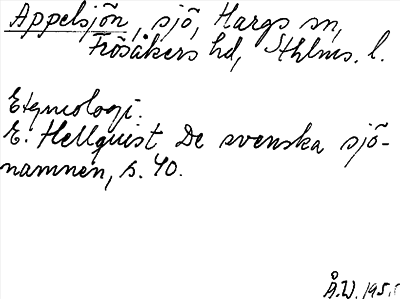 Appelsjön, sjö, Hargs sn,
Frösåkers hd, Sthlms. l.
Etymologi.
E. Hellquist, De svenska sjö-
namnen, s. 40.
Å.W.